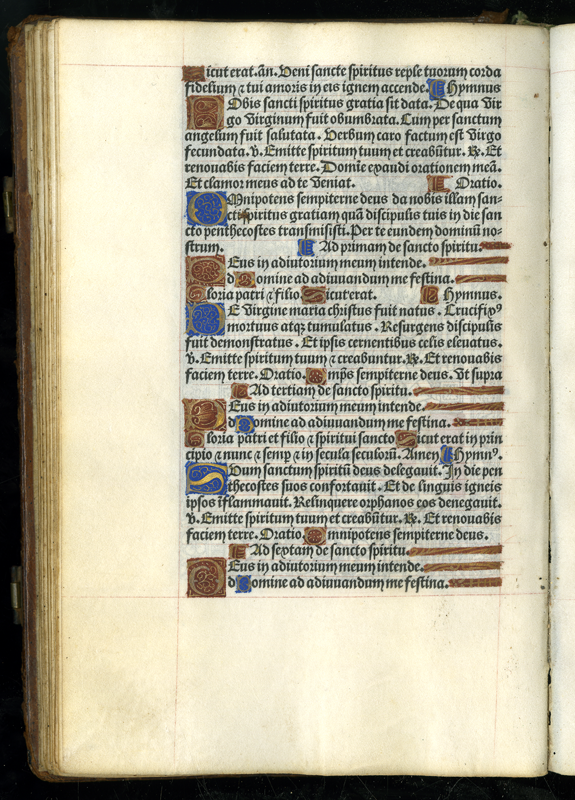 Sicut erat. añ. Veni sancte spiritus reple tuorum corda
fidelium ⁊ tui amoris in eis ignem accende. Hymnus
Nobis sancti spiritus gratia sit data. De qua vir
go virginum fuit obumbrata. Cum per sanctum
angelum fuit salutata. Verbum caro factum est virgo
fecundata. ℣. Emitte spiritum tuum et creabũtur. ℞. Et
renovabis faciem terre. Domĩe exaudi orationem meã.
Et clamor meus ad te veniat. Oratio.
Omnipotens sempiterne deus da nobis illam san-
cti spiritus gratiam quã discipulis tuis in die san
cto penthecostes transmisisti. Per te eundem dominũ no-
strum. Ad primam de sancto spiritu.
Deus in adiutorium meum intende.
d Domine ad adiuuandum me festina.
Gloria patri ⁊ filio. Sicut erat. Hymnus.
De virgine maria christus fuit natus. Crucifixꝰ
mortuus atqꝫ tumulatus. Resurgens discipulis
fuit demonstratus. Et ipsis cernentibus celis eleuatus.
℣. Emitte spiritum tuum ⁊ creabuntur. ℞. Et renouabis
faciem terre. Oratio. Omp̃s sempiterne deus. vt supra
Ad tertiam de sancto spiritu.
Deus in adiutorium meum intende.
d Domine ad adiuuandum me festina.
Gloria patri et filio ⁊ spiritui sancto Sicut erat in prin
cipio ⁊ nunc ⁊ semp̃ ⁊ in secula seculorũ. Amen Hymnꝰ.
Suum sanctum spiritũ deus delegauit. In die pen
thecostes suos confortauit. Et de linguis igneis
ipsos ĩflammauit. Relinquere orphanos eos denegauit.
℣. Emitte spiritum tuum et creabũtur. ℞. Et renouabis
faciem terre. Oratio. Omnipotens sempiterne deus.
Ad sextam de sancto spiritu.
Deus in adiutorium meum intende.
d Domine ad adiuuandum me festina.